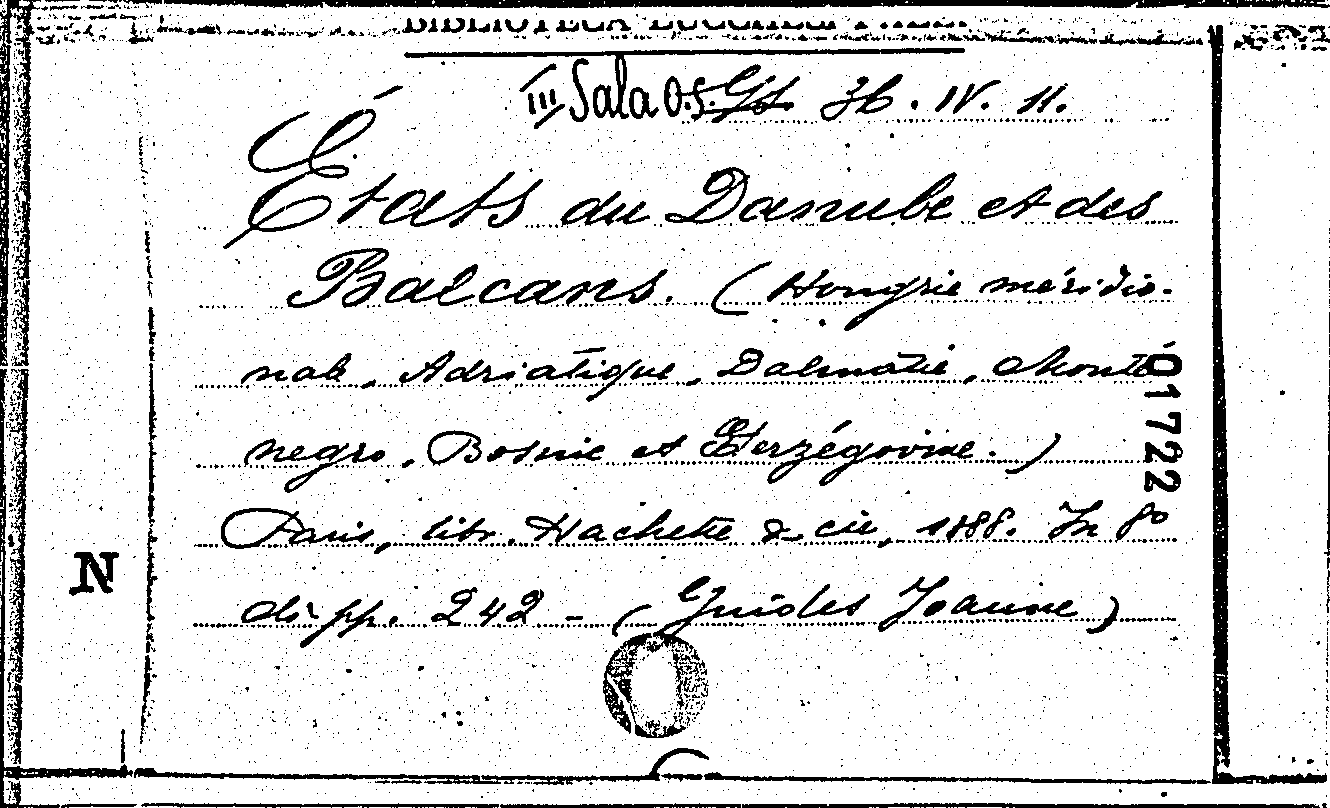 BIBLIOTECA
III Sala O.S. H. IV. 11.
États du Danube et des
Balcans. (Hongrie méridio-
nale, Adriatique, Dalmatie, Monté
negro, Bosnie et Herzégovine.)
Paris, libr. Hachette & cie, 1888. In 8º
di pp. 242 - (Guides Joanne)
N
01722